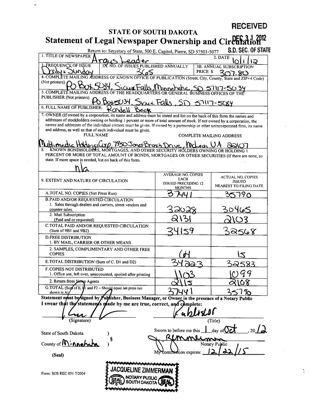 RECEIVED
DEC 3 1 2012
S.D. SEC. OF STATE
STATE OF SOUTH DAKOTA
Statement of Legal Newspaper Ownership and Circulation
Return to: Secretary of State, 500 E. Capitol, Pierre, SD 57501-5077
1. TITLE OF NEWSPAPER Argus Leader
2. DATE 10/1/12
3. FREQUENCY OF ISSUE Daily + Sunday
3A. NO. OF ISSUES PUBLISHED ANNUALLY 365
3B. ANNUAL SUBSCRIPTION PRICE $ 307.80
4. COMPLETE MAILING ADDRESS OF KNOWN OFFICE OF PUBLICATION (Street, City, County, State and ZIP+4 Code)
(Not printers) Po Box 5034, Sioux Falls Minnehaha, SD 57117-5034
5. COMPLETE MAILING ADDRESS OF THE HEADQUARTERS OR GENERAL BUSINESS OFFICES OF THE
PUBLISHER (Not printer)
Po Box 5034, Sioux Falls, SD 57117-5034
6. FULL NAME OF PUBLISHER: Randell Beck
7. OWNER (If owned by a corporation, its name and address must be stated and list on the back of this form the names and
addresses of stockholders owning or holding 1 percent or more of total amount of stock. If not owned by a corporation, the
names and addresses of the individual owners must be given. If owned by a partnership or other unincorporated firm, its name
and address, as well as that of each individual must be given.
FULL NAME COMPLETE MAILING ADDRESS
Multimedia Holdings Corp, 7950 Jones Branch Drive, McLean VA 22107
8. KNOWN BONDHOLDERS, MORTGAGES, AND OTHER SECURITY HOLDERS OWNING OR HOLDING 1
PERCENT OR MORE OF TOTAL AMOUNT OF BONDS, MORTGAGES OR OTHER SECURITIES (If there are none, so
state. If more space is needed, list on back of this form.
n/a
9. EXTENT AND NATURE OF CIRCULATION
AVERAGE NO. COPIES EACH ISSUED PRECEDING 12 MONTHS
ACTUAL NO. COPIES ISSUED NEAREST TO FILING DATE
A. TOTAL NO. COPIES (Net Press Run) 37441 35790
B. PAID AND/OR REQUESTED CIRCULATION
1. Sales through dealers and carriers, street vendors and
counter sales. 32028 30465
2. Mail Subscription
(Paid and or requested) 2131 2103
C. TOTAL PAID AND/OR REQUESTED CIRCULATION
(Sum of 9B1 and 9B2) 34159 32568
D. FREE DISTRIBUTION
1. BY MAIL, CARRIER OR OTHER MEANS
2. SAMPLES, COMPLIMENTARY AND OTHER FREE
COPIES 64 15
E. TOTAL DISTRIBUTION (Sum of C, D1 and D2) 34223 32583
F. COPIES NOT DISTRIBUTED
1. Office use, left over, unaccounted, spoiled after printing 1103 1099
2. Return from News Agents 2115 2108
G. TOTAL (Sum of E, F1 and F2 - Should equal net press run
shown in A) 37441 35790
Statement must be signed by Publisher, Business Manager, or Owner in the presence of a Notary Public
I swear that the statements made by me are true, correct, and complete:
Publisher
(Signature) (Title)
State of South Dakota )
§ Sworn to before me this 1 day of Oct, 2012
County of Minnehaha )
Notary Public
(Seal) My Commission expires: 12/22/15
JACQUELINE ZIMMERMAN
NOTARY PUBLIC
SOUTH DAKOTA
SEAL SEAL
Form: SOS REC 051 7/2004